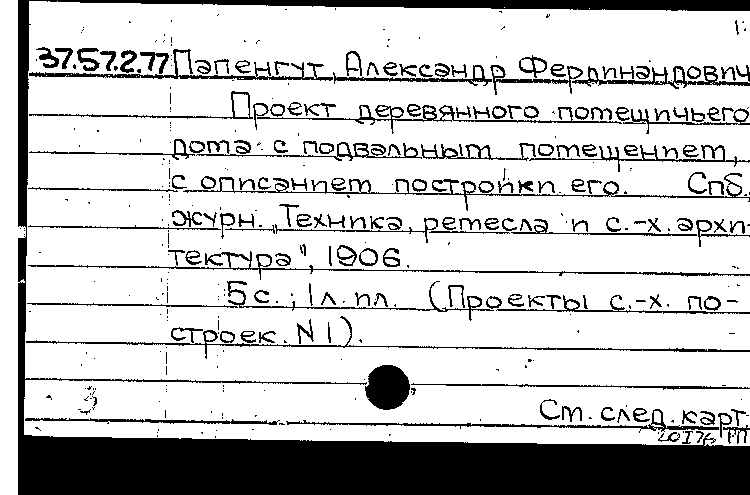 37.57.2.77 Папенгут, Александр Фердинандович
Проект деревянного помещичьего
дома с подвальным помещением,
с описанием постройки его. Спб.,
журн. „Техника, ремесла и с.-х. архи-
тектура", 1906.
5с.; 1л. пл. (Проекты с.-х. по-
строек. N 1).
3
См. след. карт.